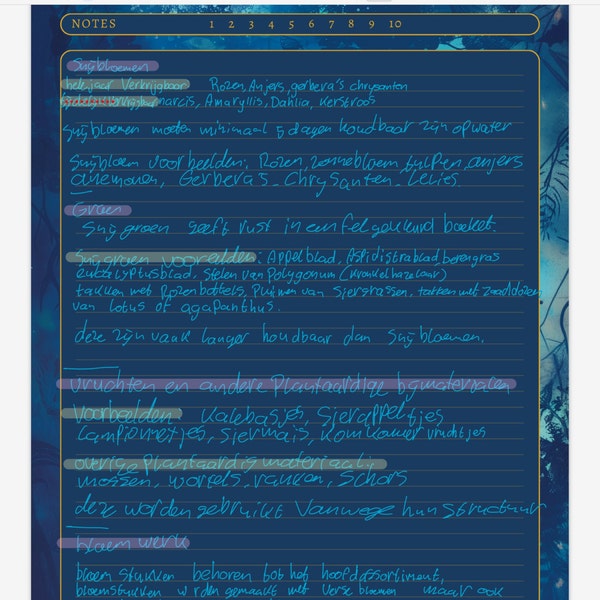 NOTES 1 2 3 4 5 6 7 8 9 10
Snijbloemen
hele jaar Verkrijgbaar Rozen, Anjers, gerbera's chrysanten
narcis, Amaryllis, Dahlia, Kerstroos
Snijbloemen moeten minimaal 5 dagen houdbaar zijn op water
Snijbloem voorbeelden: Rozen, zonnebloem, tulpen, anjers
anemonen, Gerbera's, Chrysanten, Lelies
Groen
Snijgroen geeft rust in een fel gekleurd boeket.
Snijgroen voorbeelden: Appelblad, Aspidistrablad berengras
eucalyptusblad, Stelen van Polygonum (kronkelhazelaar)
takken met Rozenbottels, Pluimen van Siergrassen, takken met zaaddozen
van lotus of agapanthus.
deze zijn vaak langer houdbaar dan Snijbloemen.
Vruchten en andere Plantaardige bijmaterialen
Voorbeelden Kalebasjes, Sierappeltjes
Lampionnetjes, Siermais, Komkommer vruchtjes
overige plantaardig materiaal:
mossen, wortels, ranken, Schors
deze worden gebruikt Vanwege hun Structuur
bloem werk
bloem stukken behoren tot het hoofdassortiment,
bloemstukken worden gemaakt met Verse bloemen maar ook